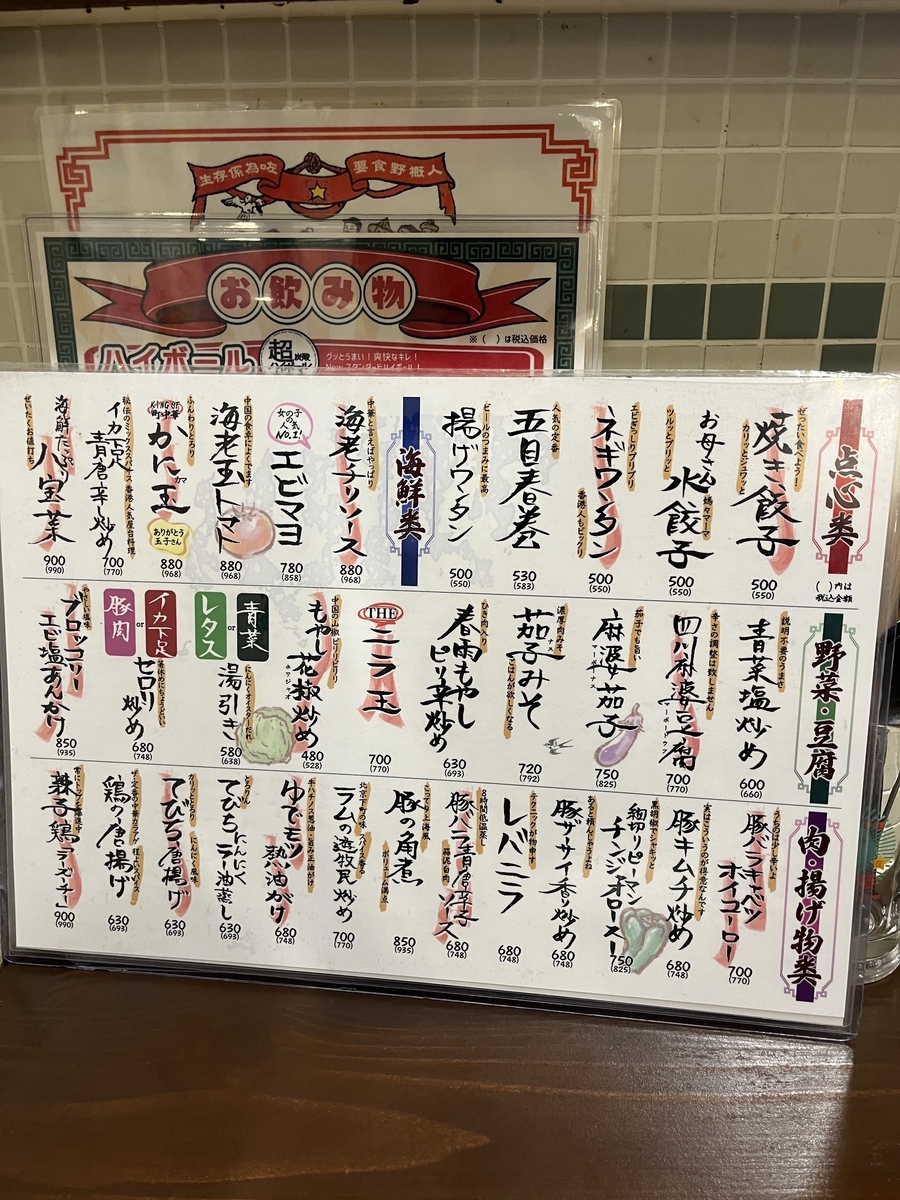 生存係為咗
要食野概人
お飲み物
※（ ）は税込価格
ハイボール
超炭酸
グッとうまい！爽快なキレ！
点心类
（ ）内は
税込金額
ぜったい食べよう！
カリッとジュワッと
焼き餃子
500
(550)
お母さん
媽々マーマ
水餃子
ツルッとプリッと
500
(550)
エビぎっしりプリプリ
ネギワンタン
香港人もビックリ
500
(550)
人気の定番
五目春巻
530
(583)
ビールのつまみに最高
揚げワンタン
500
(550)
海鮮类
中華と言えばやっぱり
海老チリソース
880
(968)
女の子
の人気
NO.1!
エビマヨ
780
(858)
中国の食卓によくでます
海老玉トマト
880
(968)
ふんわりとろり
KING OF
町中華
かに玉
カマ
ありがとう
玉子さん
880
(968)
秘伝のミックススパイス 香港人気屋台料理
イカ下足
青唐辛し炒め
700
(770)
ぜいたくお値打ち
海鮮たっぷり
八宝菜
900
(990)
野菜・豆腐
説明不要のうまさ
青菜塩炒め
600
(660)
辛さの調整は致しません
四川麻婆豆腐
マーボードウフ
700
(770)
茄子でも旨い
麻婆茄子
マーボーナス
750
(825)
濃厚肉みそ
茄子みそ
ナス
ごはんが欲しくなる
720
(792)
ひき肉入り
春雨もやし
ピリ辛炒め
630
(693)
THE
ニラ玉
700
(770)
中国の山椒ピリピリリ
もやし花椒炒め
ホワジャオ
480
(528)
青菜
or
レタス
にんにくオイスターだれ
湯引き
580
(638)
イカ下足
or
豚肉
箸休めにちょうどいい
セロリ
炒め
680
(748)
やさしい塩味
ブロッコリー
エビ塩あんかけ
850
(935)
肉・揚げ物类
うちのは少し辛いよ
豚バラキャベツ
ホイコーロー
700
(770)
実はこういうのが得意なんです
豚キムチ炒め
680
(748)
黒胡椒でシャキッと
細切りピーマン
チンジャオロースー
750
(825)
あると頼んじゃうよね
豚ザーサイ香り炒め
680
(748)
テクニックが物申す
レバニラ
680
(748)
8時間低温蒸し
豚バラ青唐辛子
ソース
680
(748)
こってり上海風
豚の角煮
ボリューム満点
850
(935)
北京下町の味
スパイス香る
ラムの遊牧民炒め
700
(770)
ゆでモツ
熱油がけ
680
(748)
とろりん
てびち にんにく
ラー油蒸し
630
(693)
カリッととろり
にんにく風味
てびち唐揚げ
630
(693)
鶏の唐揚げ
630
(693)
辣子鶏 ラーズーチー
900
(990)